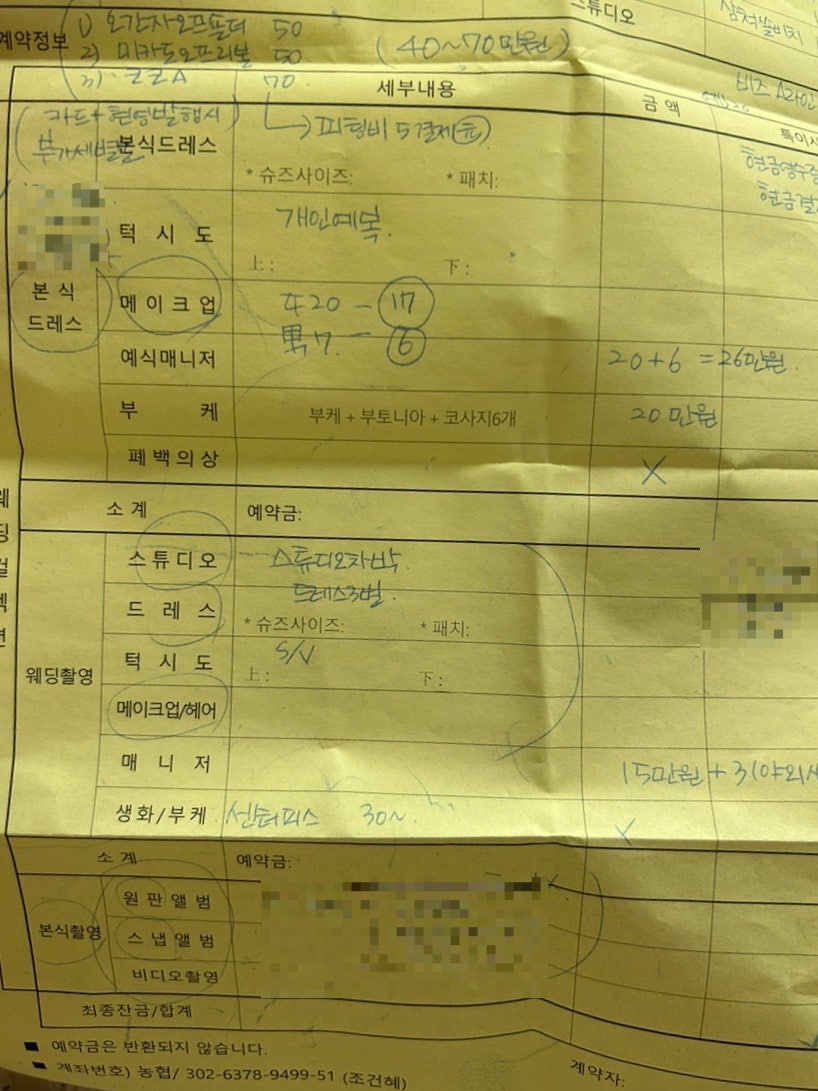 스튜디오
삼척쏠비치
계약정보
1) 오간자오프숄더 50
2) 미카도오프리본 50
(40~70만원)
70
세부내용
금 액
비즈
카드+현영발행시
부가세별도
피팅비 5 결제
본식드레스
* 슈즈사이즈: * 패치:
현금영수증
현금결
턱 시 도
개인예복.
上: 下:
본 식
드레스
메 이 크 업
女20 - 17
男7. - 6
예식매니저
20+6 =26만원.
부 케
부케 + 부토니아 + 코사지6개
20만원
폐백의상
X
소 계
예약금:
웨딩촬영
스 튜 디 오
스튜디오차박.
드 레 스
드레스3벌.
* 슈즈사이즈: * 패치:
턱 시 도
S/V
上: 下:
메이크업/헤어
매 니 저
15만원 + 3(야외
생화/부케
센터피스 30~
X
소 계
예약금:
본식촬영
원 판 앨 범
스 냅 앨 범
비디오촬영
최종잔금/합계
■ 예약금은 반환되지 않습니다.
■ 계좌번호) 농협/ 302-6378-9499-51 (조건혜)
계약자: